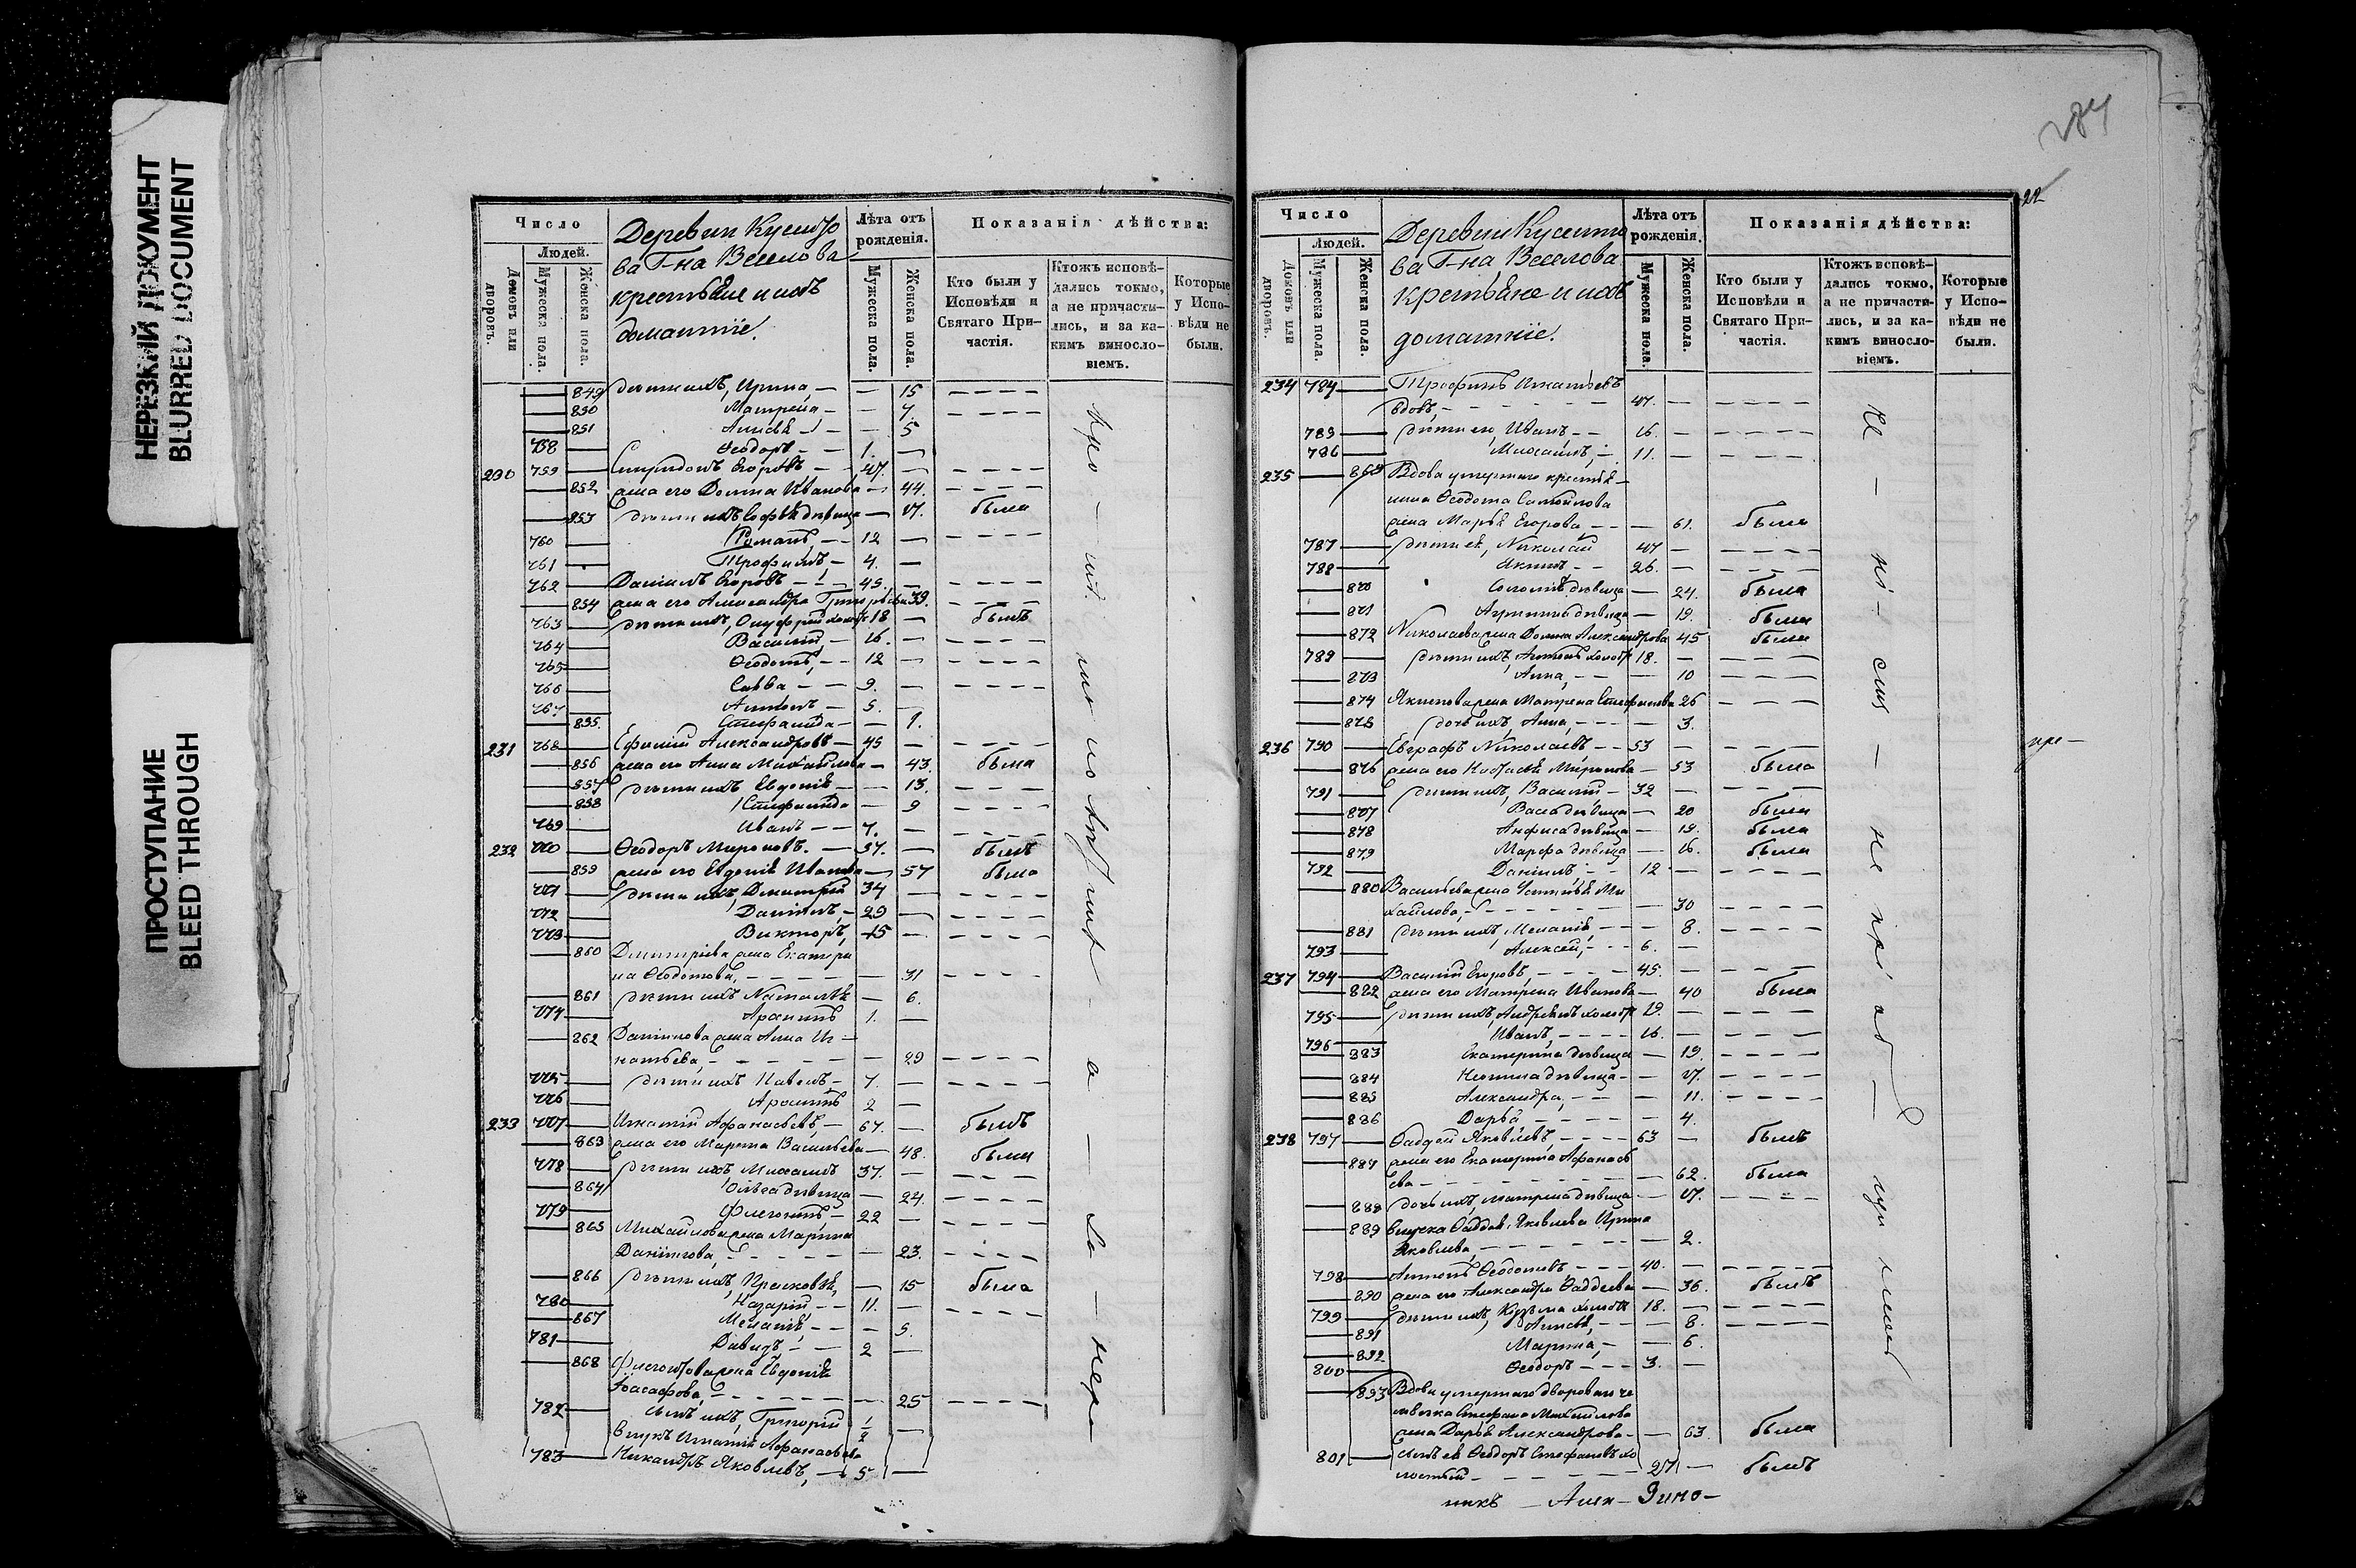 НЕРЕЗКИЙ ДОКУМЕНТ
BLURRED DOCUMENT
ПРОСТУПАНИЕ
BLEED THROUGH
Число
Людей.
Домовъ или дворовъ.
Мужеска пола.
Женска пола.
Деревни
ва Г-на Веселова
крестьяне и ихъ
домашніе.
Лѣта отъ рожденія.
Мужеска пола.
Женска пола.
Показанія дѣйства:
Кто были у Исповѣди и Святаго Причастія.
Ктожъ исповѣдались токмо, а не причастились, и за какимъ винословіемъ.
Которые у Исповѣди не были.
849 дѣти ихъ, Ирина 15
850 Матрена 7.
851 5
758 Ѳеодоръ 1.
230 759 Спиридонъ Егоровъ 47.
852 жена его Домна Иванова 44.
853 дѣти ихъ Софья девица 17. была
760 Романъ 12
761 Трофимъ 4.
762 Даніилъ Егоровъ 45.
854 жена его Александра Григорьева 39.
763 дѣти ихъ, Онуфрій холостъ 18 былъ
764 Василій 16.
765 Ѳеодотъ 12
766 Савва 9.
767 Антонъ 5.
855. Стефанида 1.
231 768 Ефимій Александровъ 45
856 жена его Анна Михайлова 43. была
857 дѣти ихъ Евдокія 13.
858 Стефанида 9
769 Иванъ 7.
232 770 Ѳеодоръ Мироновъ. 57. былъ
859 жена его Евдокія Иванова 57 была
771 дѣти ихъ, Димитрій 34
772 Даніилъ 29
773 Викторъ 15
860 Димитріева жена Екатери
на Ѳеодотова, 31
861 дѣти ихъ Наталья 6.
774 1.
862 Даніилова жена Анна Иг
натьева, 29
775 дѣти ихъ Павелъ 7.
776 2
233 777 Игнатій Афанасьевъ 67. былъ
863 жена его Марина Васильева 48. была
778 дѣти ихъ Михаилъ 37.
864 Ольга девица 24.
779 Флегонтъ 22
865 Михайлова жена Марина
Даніилова, 23.
866 дѣти ихъ, Прасковья, 15 была
780 Назарій 11.
867 Меланія 5.
781 Давидъ 2
868 Флегонтова жена Евдокія
Іоасафова, 25
782 сынъ ихъ, Григорій 1/2
внукъ Игнатія Афанасьева
783 Никандръ Яковлевъ, 5
284
22
Число
Людей.
Домовъ или дворовъ.
Мужеска пола.
Женска пола.
Деревни
ва Г-на Веселова
крестьяне и ихъ
домашніе.
Лѣта отъ рожденія.
Мужеска пола.
Женска пола.
Показанія дѣйства:
Кто были у Исповѣди и Святаго Причастія.
Ктожъ исповѣдались токмо, а не причастились, и за какимъ винословіемъ.
Которые у Исповѣди не были.
234 784 Трофимъ Игнатьевъ
вдовъ, 47.
785 дѣти его, Иванъ, 16.
786 Михаилъ, 11.
235 869 Вдова умершаго крестья
нина Ѳеодота Самойлова
жена Марья Егорова 61. была
787 дѣти ея, Николай 47
788 Якимъ 26.
870 девица 24. была
871 девица 19. была
872 Николаева жена Домна Александрова 45 была
789 дѣти ихъ, Антонъ холостъ 18.
873 Анна, 10
874 Якимова жена Матрена Стефанова 26
875 дочь ихъ, Анна, 3.
236 790 Евграфъ Николаевъ 53
876 жена его Наталья Миронова 53 была
791 дѣти ихъ, Василій 32
877 Васса девица 20 была
878 Анфиса девица 19. была
879 Марфа девица 16. была
792 Даніилъ 12
880 Васильева жена Устинья Ми
хайлова, 30
881 дѣти ихъ, Меланія, 8.
793 Алексей, 6.
237 794 Василій Егоровъ 45.
882 жена его Матрена Иванова 40 была
795 дѣти ихъ, холостъ 19.
796 Иванъ, 16.
883 Екатерина девица 19.
884 Неонила девица 17.
885 Александра, 11.
886 Дарья 4.
238 797 Ѳаддей Яковлевъ 63 былъ
887 жена его Екатерина Афанась
ева 62. была
888 дочь ихъ, Матрена девица 17.
889 внучка Ѳаддея Яковлева Ирина
Яковлева, 2.
798 Антонъ Ѳеодотовъ 40.
890 жена его Александра Ѳаддеева 36. былъ
799 дѣти ихъ, Козьма холостъ 18.
891 8.
892 Марина, 6.
800 Ѳеодоръ 3.
893 Вдова умершаго двороваго че
ловека Стефана Михайлова
жена Дарья Александрова 63. была
801 сынъ ея Ѳеодоръ Стефановъ хо
лостый 27 былъ